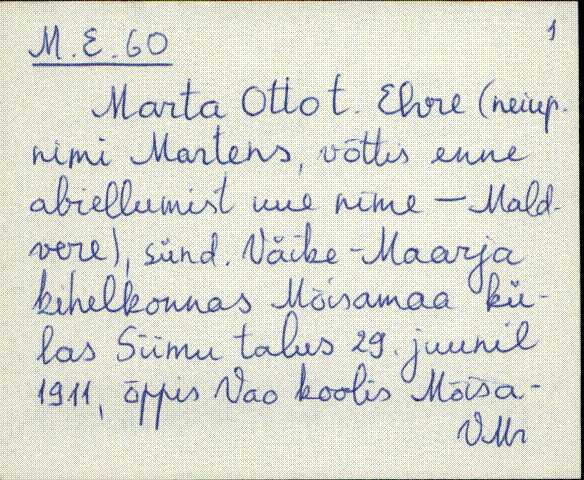 M.E.60
1
Marta Otto t. Ehre (neiup.
nimi Martens, võttis enne
abiellumist uue nime — Mald-
vere), sünd. Väike-Maarja
kihelkonnas Mõisamaa kü-
las Siimu talus 29. juunil
1911, õppis Vao koolis Mõisa-
VMr